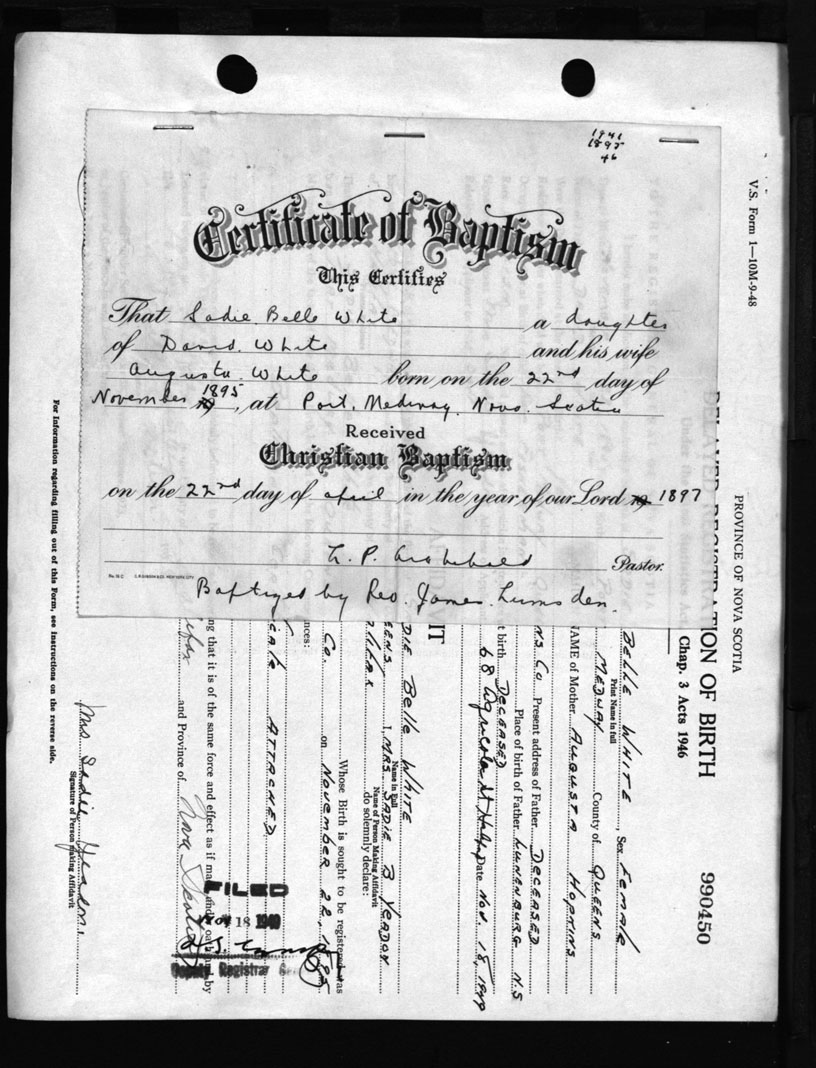 1941
1895
46
Certificate of Baptism
This Certifies
That Sadie Belle White a daughter
of David White and his wife
Augusta White born on the 22nd day of
November 1895, at Port Medway Nova Scotia
Received
Christian Baptism
on the 22nd day of April in the year of our Lord 1897
L. P. Archibald Pastor.
Baptized by Rev. James Lumsden.
V.S. Form 1—10M-9-48
PROVINCE OF NOVA SCOTIA
DELAYED REGISTRATION OF BIRTH
Chap. 3 Acts 1946
990450
BELLE WHITE, Sex FEMALE
Print Name in full
MEDWAY County of QUEENS
NAME of Mother AUGUSTA HOPKINS
NS Co Present address of Father DECEASED
Place of birth of Father LUNENBURG N.S
t birth DECEASED
68 Agricola St Date Nov. 18, 1949
IT
DIE BELLE WHITE
Name in Full
EENS I, MRS. SADIE B YEADON
Name of Person Making Affidavit
do solemnly declare:
Whose Birth is sought to be registered was
Co. on NOVEMBER 22, 1895
nces:
ATTACHED
ng that it is of the same force and effect as if made under oath
by
and Province of Nova Scotia
FILED
Nov 18 1949
Deputy Registrar
Mrs Sadie Yeadon.
Signature of Person making Affidavit
For Information regarding filling out of this Form, see Instructions on the reverse side.